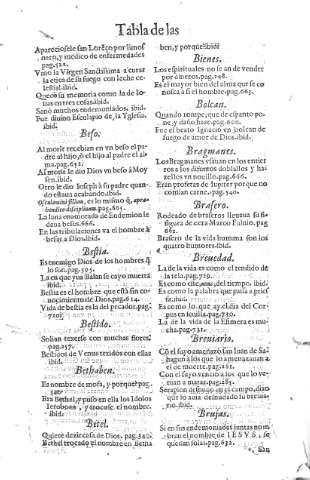 Tabla de las
Apareciosele san Lorẽço por limos
nero, y medico de enfermedades
pag.522.
Vino la Virgen Sanctissima a curar
la etica de su fuego con leche ce-
lestial.ibid.
Quexòsa su memoria como la de lo
nas entres cosas.ibid.
Sanò muchos endemoniados. ibid.
Fue diuino Esculapio de la Yglesia
ibid.
Beso.
Al morir recebian en vn beso el pa-
dre al hijo, ò el hijo al padre el al-
ma.pag.652.
Al morir le dio Dios vn beso à Moy
sen.ibid.
Otro le dio Ioseph à su padre quan-
do estaua acabando.ibid.
Osculamini filium, es lo mismo q̃, apre
hendite disciplinam.pag.665.
La luna enamorada de Endemion le
daua besos.666.
En las tribulaciones va el hombre à
besar a Dios.ibid.
Bestia.
Es enemigo Dios de los hombres q̃
lo son.pag.595.
La en que yua Balan se cayo muerta
ibid.
Bestia es el hombre que està sin co-
nocimiento de Dios.pag.614.
Vida de bestia es la del pecador.pag.
720.
Bestido.
Solian texerse con muchas flores.
pag.259.
Bestidos de Venus texidos con ellas
ibid.
Bethaben.
Es nombre de mofa, y porque? pag.
340.
Era Bethel, y puso en ella los Idolos
Ieroboan, y trocose el nombre.
ibid.
Betel.
Quiere dezir casa de Dios. pag.340.
Bethel trocado el nombre en Betha
ben, y porque?ibid.
Bienes.
Los espirituales no se an de vender
por dineros.pag.748.
Es el mayor bien del alma que se co
nosca à si el hombre.pag.663.
Bolcan.
Quando rompe, que de espanto po-
ne, y daño haze.pag.600.
Fue el beato Ignacio vn bolcan de
fuego de amor de Dios.ibid.
Bragmanes.
Los Bragmanes vsauan en los entier
ros a los difuntos doblallos y ha-
zelles vn nouillo.pag.666.
Eran profetas de Iupiter porque no
comian carne.pag.540.
Brasero.
Rodeado de braseros lleuaua su fi-
sigura de cera Marco Fuluio.pag.
661.
Brasero de la vida humana son los
quatro humores.ibid.
Breuedad.
La de la vida es como el tendido de
la tela.pag.729.
Es como olic, onus, del tiempo. ibid.
Es como la palabra que passa a prief
sa.ibid.
Es como lo que ay el dia del Cor-
pus en Seuilla.pag.730.
La de la vida de la Efimera es mu-
cha.pag.731.
Breuiario.
Cõ el suyo amenazò san Iuan de Sa-
hagun à los que lo amenazauan a
el de muerte.pag.281.
Con el suyo vencio à los que lo ve-
nian a matar.pag.281.
Serapion defensor en el campo, dixo
que lo auia desnudado su breuia-
rio.ibid.
Brujas.
Si en sus endemoniadas juntas nom
bran el nombre de IESVS, se
quedan solas.pag.632.